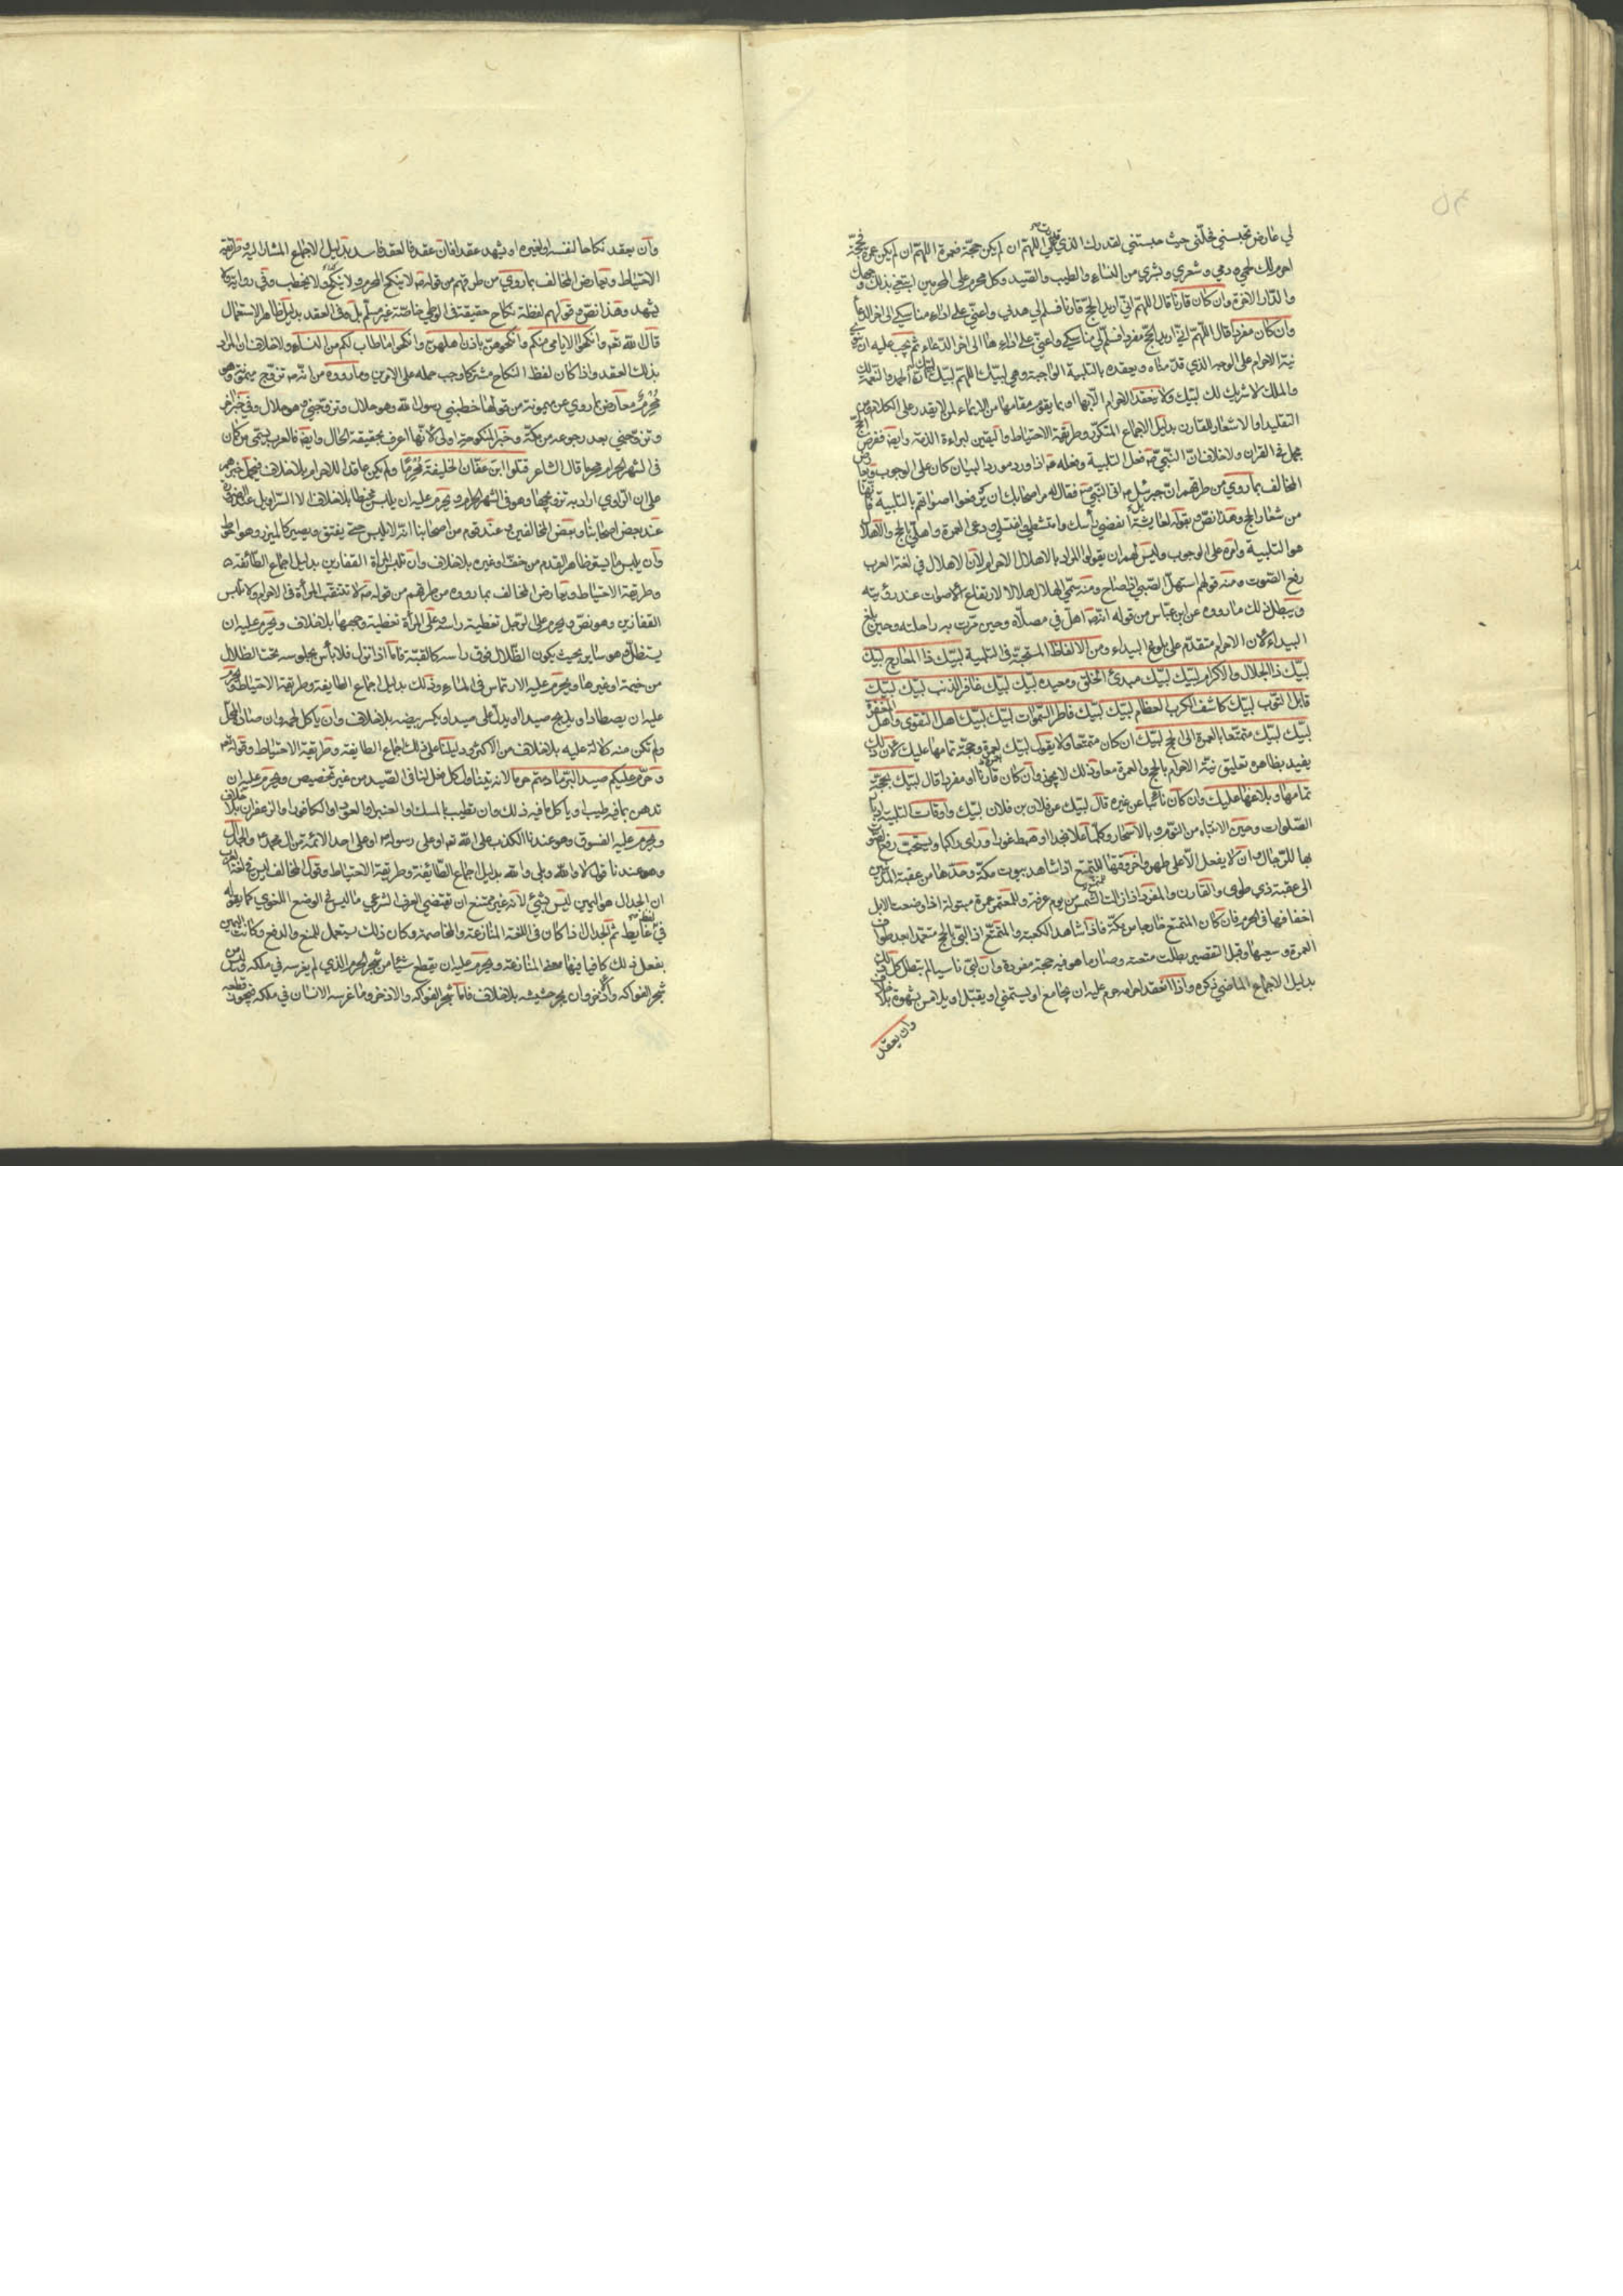 لي عارض يحبسني فحلني حيث حبستني لقدرك الذي قدرت علي اللهم ان لم يكن حجة فعمرة اللهم ان لم يكن عمرة فحجة
احرم لك لحمي ودمي وشعري وبشري من النساء والطيب والصيد وكل محرم على المحرمين ابتغي بذلك وجهك
والدار الاخرة وان كان قارنا قال اللهم اني اريد الحج قارنا فسلم لي هديي واعني على اداء مناسكي الى اخر الدعاء
وان كان مفردا قال اللهم اني اريد الحج مفردا فسلم لي مناسكي واعني على اداءها الى اخر الدعاء ثم يجب عليه ان
نية الاحرام على الوجه الذي قدمناه ويعقده بالتلبية الواجبة وهي لبيك اللهم لبيك لبيك ان الحمد والنعمة لك
والملك لا شريك لك لبيك ولا ينعقد الاحرام الا بها او بما يقوم مقامها من الايماء لمن لا يقدر على الكلام ومن
التقليد او الاشعار للقارن بدليل الاجماع المتكرر وطريقة الاحتياط واليقين لبراءة الذمة وايضا ففرض الحج
مجمل في القران ولا خلاف ان النبي ص فعل التلبية وفعله ص اذا ورد مورد البيان كان على الوجوب ويعارض
المخالف بما روي من طرقهم ان جبرئيل ع اتى النبي ص فقال له مر اصحابك ان يرفعوا اصواتهم بالتلبية فانها
من شعار الحج وهذا نص وبقوله لعايشة انفضي رأسك وامتشطي واغتسلي ودعي العمرة واهلي بالحج والاهلال
هو التلبية وامره على الوجوب وليس لهم ان يقولوا المراد بالاهلال الاحرام لان الاهلال في لغة العرب
رفع الصوت ومنه قولهم استهل الصبي اذا صاح ومنه سمي الهلال هلالا لارتفاع الاصوات عند رؤيته
ويبطل ذلك ما رووه عن ابن عباس من قوله انه ص اهل في مصلاه وحين مرت به راحلته وحين بلغ
البيداء لان الاحرام متقدم على بلوغ البيداء ومن الالفاظ المستحبة في التلبية لبيك ذا المعارج لبيك
لبيك ذا الجلال والاكرام لبيك لبيك مبدئ الخلق ومعيده لبيك لبيك غافر الذنب لبيك لبيك
قابل التوب لبيك كاشف الكرب العظام لبيك لبيك فاطر السموات لبيك لبيك اهل التقوى واهل المغفرة
لبيك لبيك متمتعا بالعمرة الى الحج لبيك ان كان متمتعا ولا يقول لبيك بعمرة وحجة تمامها عليك لان ذلك
يفيد بظاهره تعليق نية الاحرام بالحج والعمرة معا وذلك لا يجوز وان كان قارنا او مفردا قال لبيك بحجة
تمامها وبلاغها عليك وان كان نائبا عن غيره قال لبيك عن فلان بن فلان لبيك واوقات التلبية ادبار
الصلوات وحين الانتباه من النوم وبالاسحار وكلما علا نجدا او هبط غورا او راى راكبا ويستحب رفع الصوت
بها للرجال وان لا يفعل الا على طهر واخر وقتها للمتمتع اذا شاهد بيوت مكة وحدها من عقبة المدنيين
الى عقبة ذي طوى وللقارن والمفرد اذا زالت الشمس من يوم عرفة وللمعتمر عمرة مبتولة اذا وضعت الابل
اخفافها في الحرم فان كان المتمتع خارجا من مكة فاذا شاهد الكعبة والمتمتع اذا لبى بالحج متعمدا بعد طواف
العمرة وسعيها وقبل التقصير بطلت متعته وصار ما هو فيه حجة مفردة وان لبى ناسيا لم تبطل كل ذلك
بدليل الاجماع الماضي ذكره واذا انعقد احرامه حرم عليه ان يجامع او يستمني او يقبل او يلامس بشهوة بلا خلاف
وان يعقد
وان يعقد نكاحا لنفسه او لغيره او يشهد عقدا فان عقد فالعقد فاسد بدليل الاجماع المشار اليه وطريقة
الاحتياط ويعارض المخالف بما روي من طرقهم من قوله ص لا ينكح المحرم ولا ينكح ولا يخطب وفي رواية ولا
يشهد وهذا نص وقولهم لفظة نكاح حقيقة في الوطي خاصة غير مسلم بل وفي العقد بدليل ظاهر الاستعمال
قال الله تعم وانكحوا الايامى منكم وانكحوهن باذن اهلهن وانكحوا ما طاب لكم من النساء ولا خلاف ان المراد
بذلك العقد واذا كان لفظ النكاح مشتركا وجب حمله على الامرين وما رووه من انه ص تزوج ميمونة وهو
محرم معارض بما روي عن ميمونة من قولها خطبني رسول الله وهو حلال وتزوجني وهو حلال وفي خبر اخر
وتزوجني بعد رجوعه من مكة وخبر المنكوحة اولى لانها اعرف بحقيقة الحال وايضا فالعرب يسمى من كان
في الشهر الحرام محرما قال الشاعر قتلوا ابن عفان الخليفة محرما ولم يكن عاقدا للاحرام بلا خلاف فيحمل خبرهم
على ان الراوي اراد به تزوجها وهو في الشهر الحرام ويحرم عليه ان يلبس مخيطا بلا خلاف الا السراويل عند الضرورة
عند بعض اصحابنا وبعض المخالفين وعند قوم من اصحابنا انه لا يلبس حتى يفتق ويصير كالميزر وهو احوط
وان يلبس ما يستر ظاهر القدم من خف او غيره بلا خلاف وان تلبس المراة القفازين بدليل اجماع الطائفة
وطريقة الاحتياط ويعارض المخالف بما رووه من طرقهم من قوله ص لا تتنقب المرأة في الاحرام ولا تلبس
القفازين وهو نص ويحرم على الرجل تغطية راسه وعلى المرأة تغطية وجهها بلا خلاف ويحرم عليه ان
يستظل وهو ساير بحيث يكون الظلال فوق راسه كالقبة فاما اذا نزل فلا بأس بجلوسه تحت الظلال
من خيمة او غيرها ويحرم عليه الارتماس في الماء وذلك بدليل اجماع الطايفة وطريقة الاحتياط ويحرم
عليه ان يصطاد او يذبح صيدا او يدل على صيد او يكسر بيضه بلا خلاف وان ياكل لحمه وان صاده المحل
ولم تكن منه دلالة عليه بلا خلاف من الاكثر ودليلنا على ذلك اجماع الطايفة وطريقة الاحتياط وقوله تعم
وحرم عليكم صيد البر ما دمتم حرما لانه يتناول كل فعل لنا في الصيد من غير تخصيص ويحرم عليه ان
تدهن بما فيه طيب او ياكل ما فيه ذلك وان يتطيب بالمسك والعنبر او العود او الكافور او الزعفران بلا خلاف
ويحرم عليه الفسوق وهو عندنا الكذب على الله تعم او على رسوله ص او على احد الائمة من ال محمد ع والجدال
وهو عندنا قول لا والله وبلى والله بدليل اجماع الطائفة وطريقة الاحتياط وقول المخالف ليس في لغة العرب
ان الجدال هو اليمين ليس بشيء لانه غير ممتنع ان يقتضي العرف الشرعي ما ليس في الوضع اللغوي كما يقوله
في غايط ثم الجدال اذا كان في اللغة المنازعة والمخاصمة وكان ذلك يستعمل للمنع والدفع وكانت اليمين
يفعل ذلك كان فيها معنى المنازعة ويحرم عليه ان يقطع شيئا من شجر الحرم الذي لم يغرسه في ملكه وليس من
شجر الفواكه والاذخر وان يجز حشيشه بلا خلاف فاما شجر الفواكه والاذخر وما غرسه الانسان في ملكه فيجوز قطعه